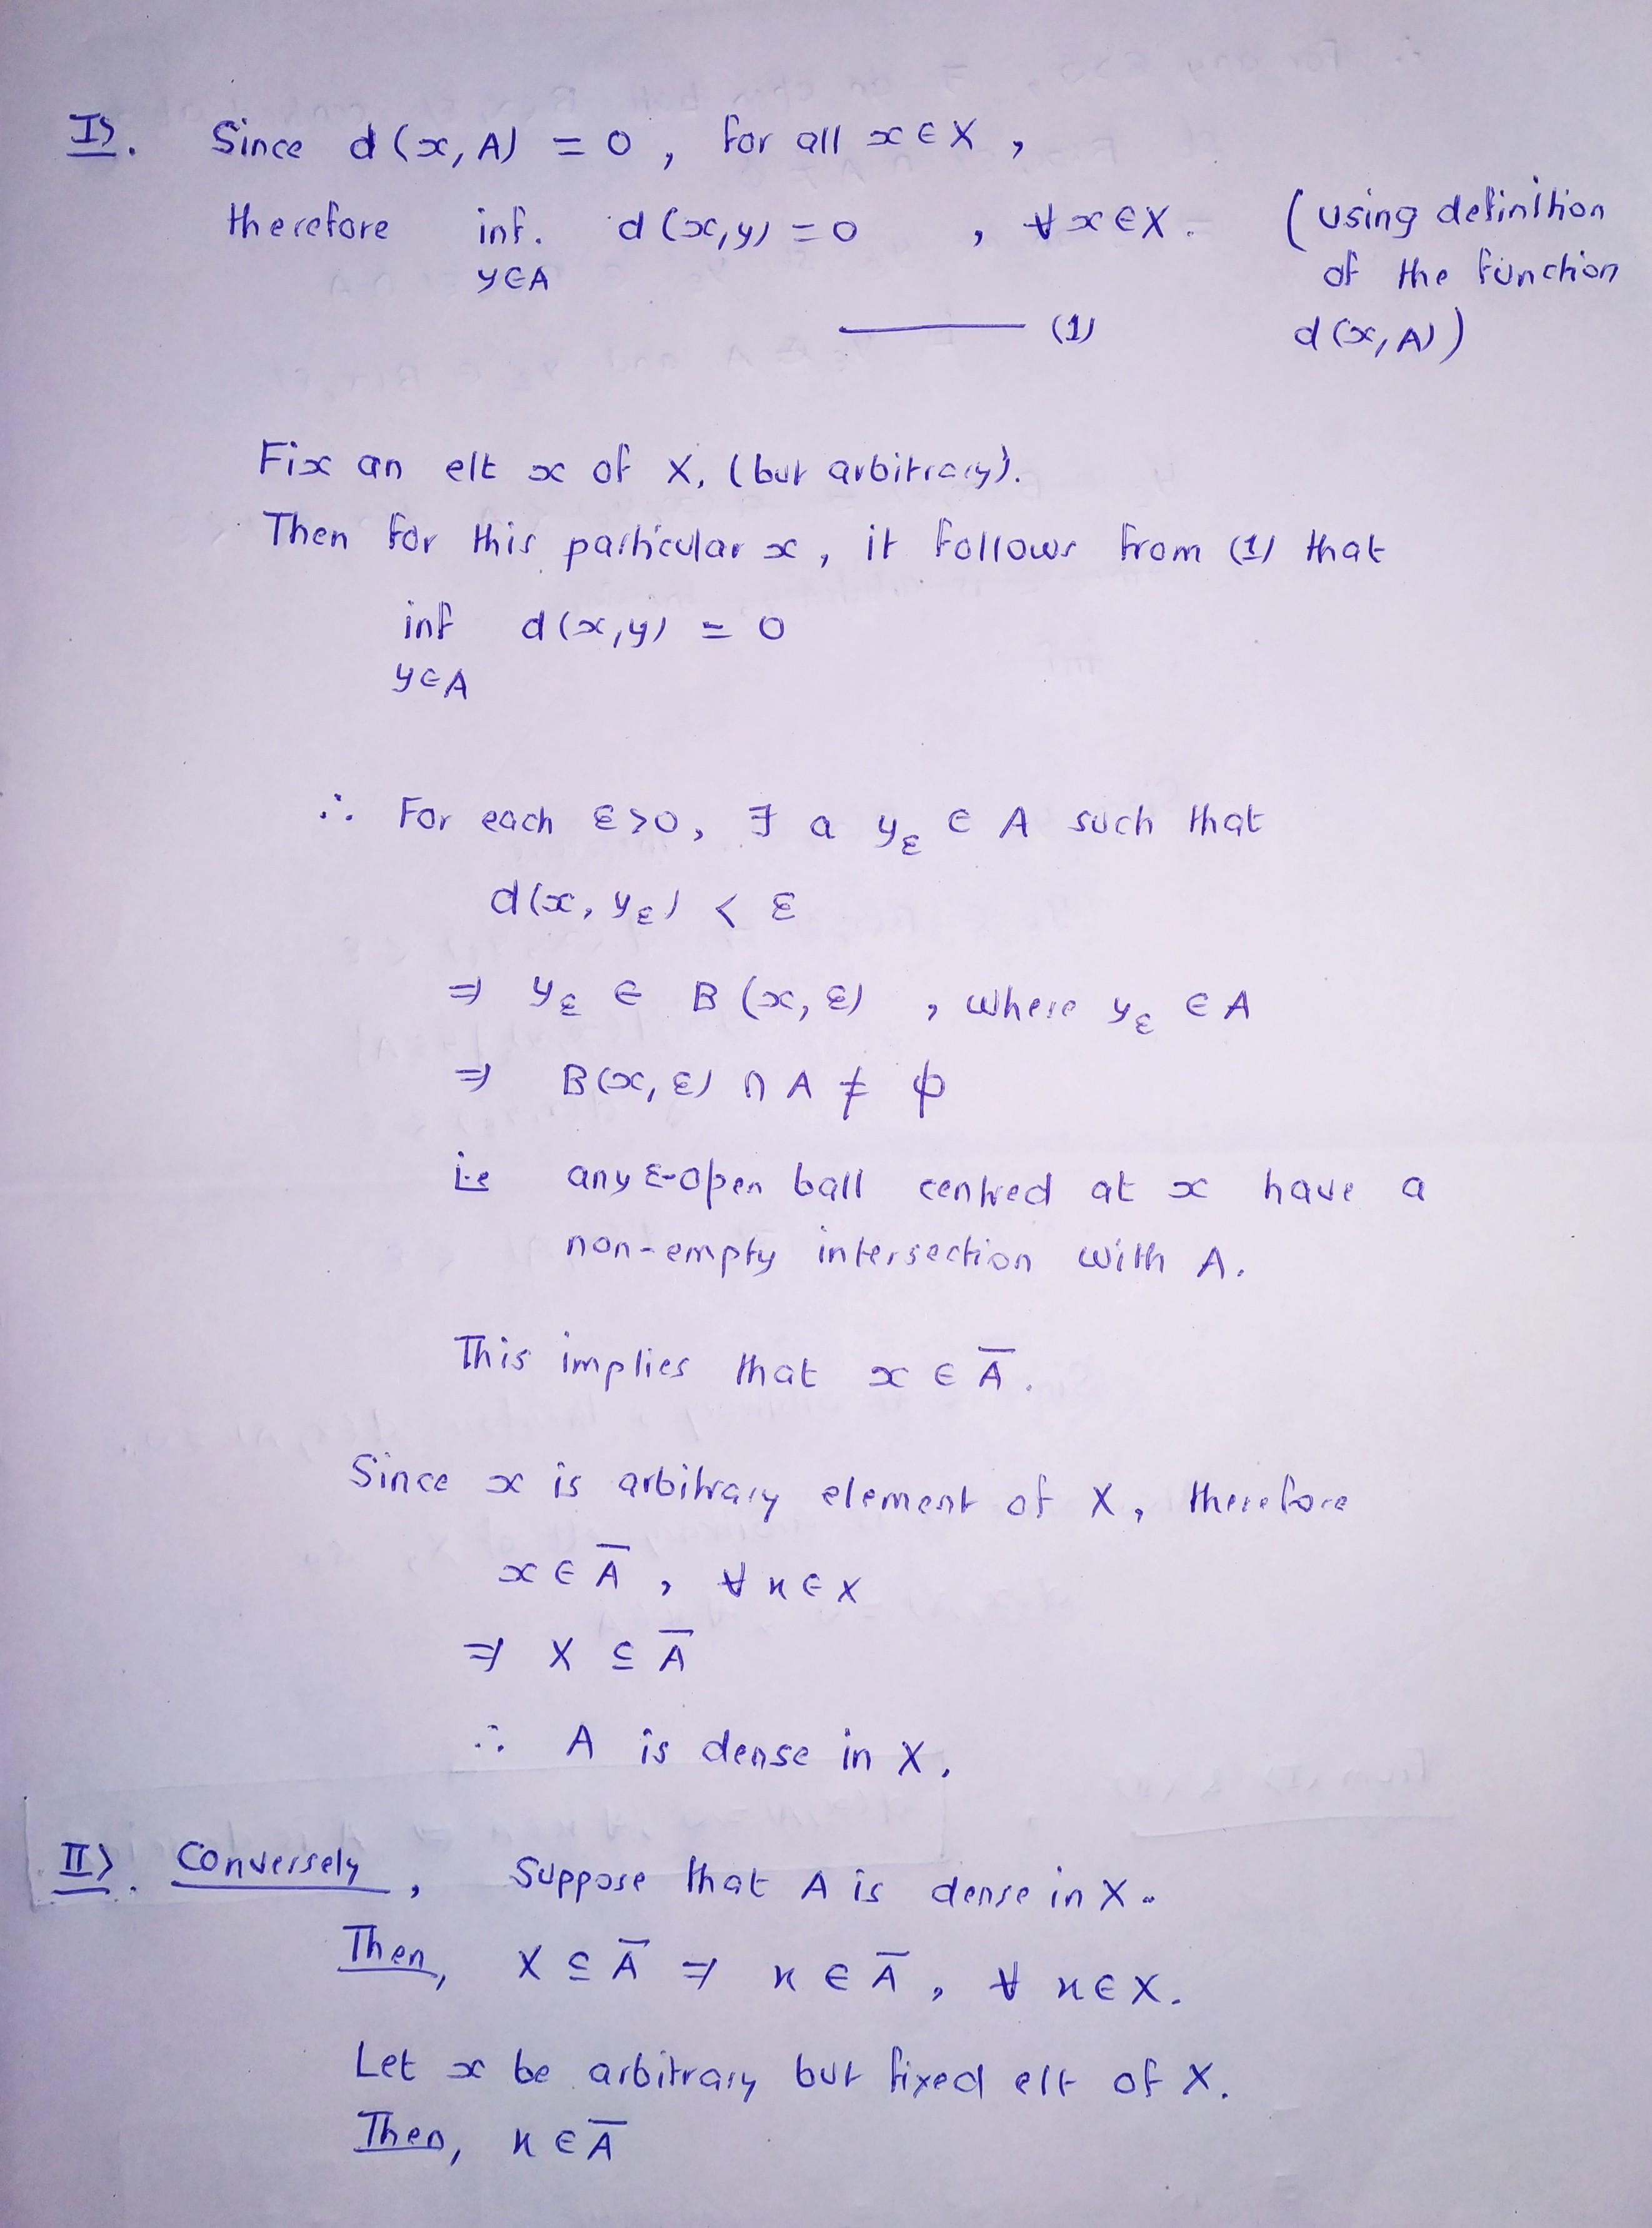 I). Since d(x, A) = 0, for all x ∈ X,
therefore inf. d(x,y) = 0 , ∀ x ∈ X. (using definition
y∈A of the function
——— (1) d(x, A))
Fix an elt x of X, (but arbitrary).
Then for this particular x, it follows from (1) that
inf d(x,y) = 0
y∈A
∴ For each ε>0, ∃ a y_ε ∈ A such that
d(x, y_ε) < ε
⇒ y_ε ∈ B(x, ε) , where y_ε ∈ A
⇒ B(x, ε) ∩ A ≠ ϕ
i.e any ε-open ball centred at x have a
non-empty intersection with A.
This implies that x ∈ A̅.
Since x is arbitrary element of X, therefore
x ∈ A̅ , ∀ x ∈ X
⇒ X ⊆ A̅
∴ A is dense in X.
II). Conversely, Suppose that A is dense in X.
Then, X ⊆ A̅ ⇒ x ∈ A̅ , ∀ x ∈ X.
Let x be arbitrary but fixed elt of X.
Then, x ∈ A̅